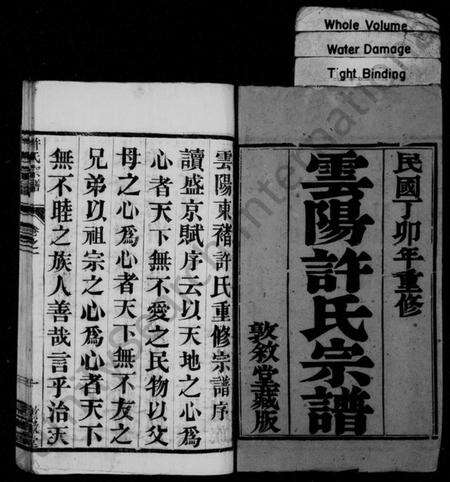 Whole Volume
Water Damage
Tight Binding
民國丁卯年重修
雲陽許氏宗譜
敦敘堂藏版
雲陽東禇許氏重修宗譜序
讀盛京賦序云以天地之心爲
心者天下無不愛之民物以父
母之心爲心者天下無不友之
兄弟以祖宗之心爲心者天下
無不睦之族人善哉言乎治天
許氏宗譜